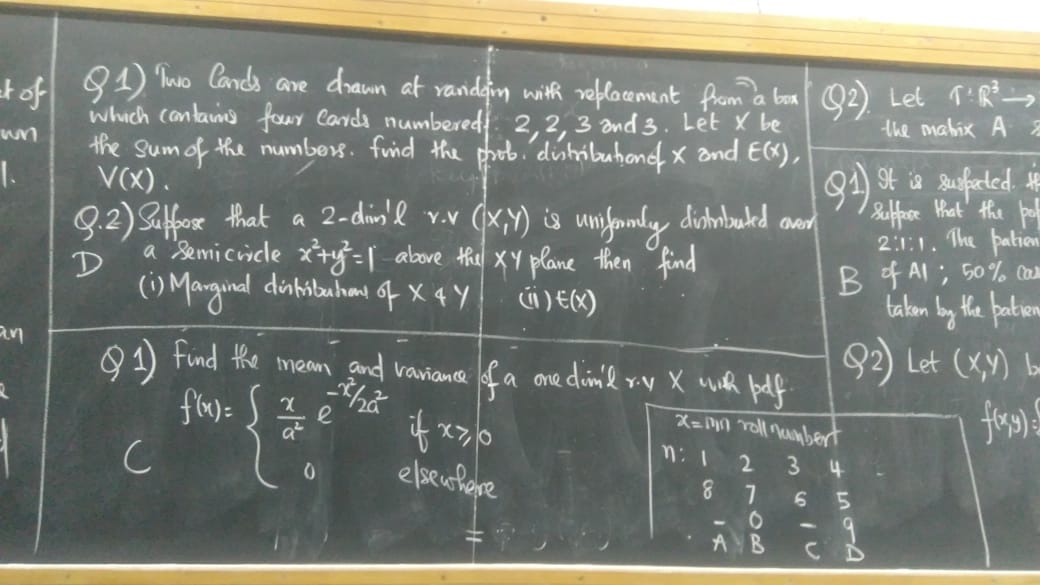 et of
wn
1.
an
Q 1) Two Cards are drawn at random with replacement from a box
which contains four Cards numbered 2, 2, 3 and 3. Let X be
the sum of the numbers. find the prob. distribution of X and E(X),
V(X).
Q.2) Suppose that a 2-dim'l r.v (X,Y) is uniformly distributed over
D a semicircle x²+y²=1 above the XY plane then find
(i) Marginal distributions of X & Y (ii) E(X)
Q 1) Find the mean and variance of a one dim'l r.v X with pdf
f(x) = { x/a² e^{-x²/2a²} if x ≥ 0
0 elsewhere
C
n: 1 2 3 4
8 7 6 5
- 0 - 9
A B C D
Q2). Let T: R³ →
the matrix A
Q1) It is suspected.
Suppose that the
2:1:1. The patien
B of A1; 50% cas
taken by the patien
Q2) Let (X,Y) b
f(x,y) = {